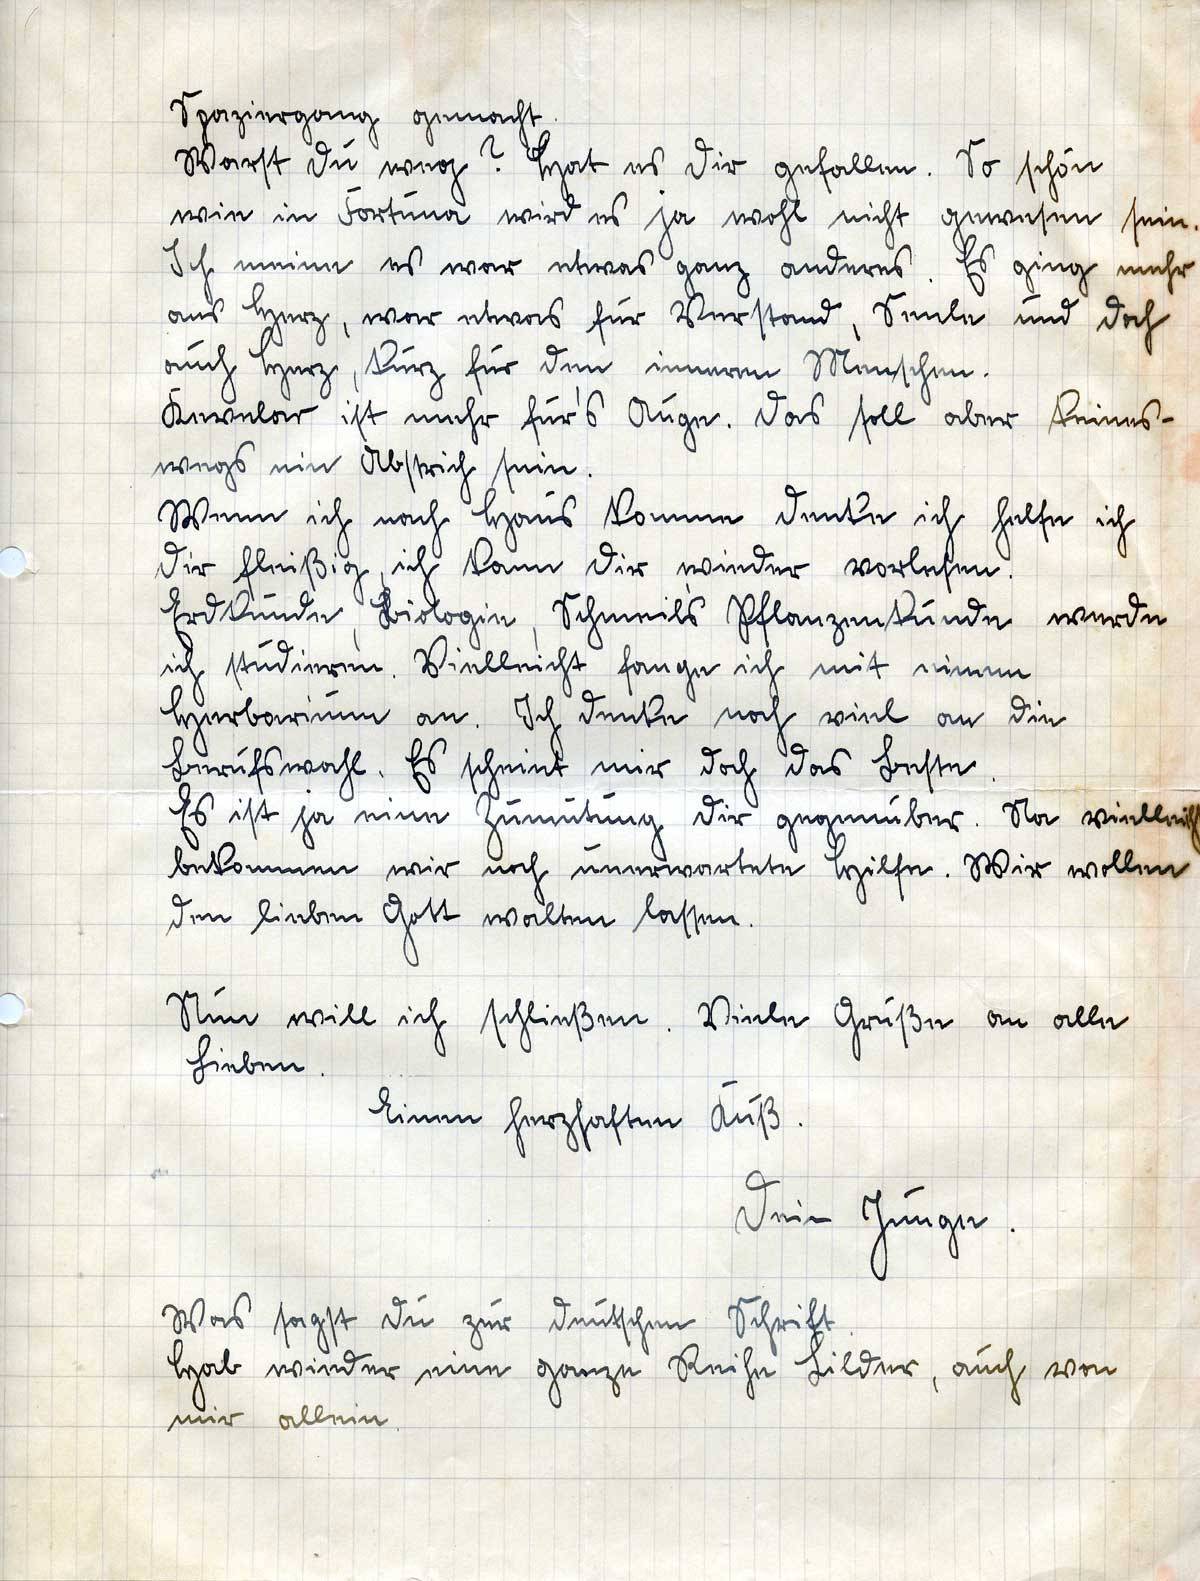 Spaziergang gemacht.
Warst Du weg? Hat es Dir gefallen. So schön
wie in Fortuna wird es ja wohl nicht gewesen sein.
Ich meine es war etwas ganz anderes. Es ging mehr
ans Herz, war etwas für Verstand, Seele und doch
auch Herz, kurz für den inneren Menschen.
Kevelar ist mehr für's Auge. Das soll aber keines-
wegs ein Abstrich sein.
Wenn ich nach Haus komme denke ich helfe ich
Dir fleißig, ich kann Dir wieder vorlesen.
Erdkunde, Biologie, Schmeils Pflanzenkunde werde
ich studieren. Vielleicht fange ich mit einem
Herbarium an. Ich denke noch viel an die
Berufswahl. Es scheint mir doch das Beste.
Es ist ja eine Zumutung dir gegenüber. Na vielleicht
bekommen wir noch unerwartete Hilfe. Wir wollen
den lieben Gott walten lassen.
Nun will ich schließen. Viele Grüße an alle
Lieben.
Einen herzhaften Kuß.
Dein Junge.
Was sagst Du zur deutschen Schrift.
Hab wieder eine ganze Reihe Bilder, auch von
mir allein.